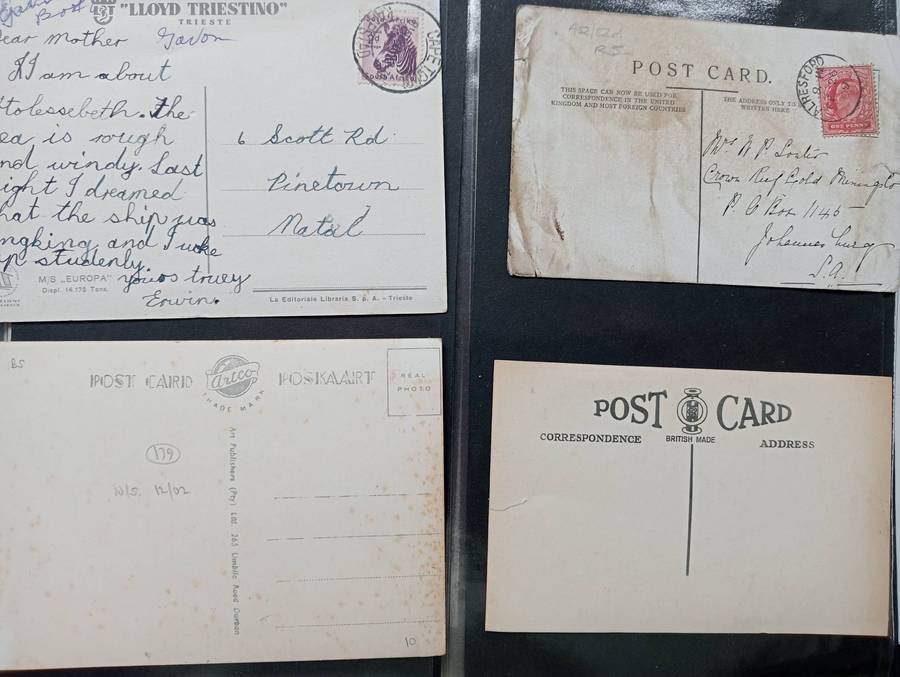 "LLOYD TRIESTINO"
TRIESTE
ear mother Gavon
I am about
the
ea is rough
nd windy. Last
ight I dreamed
hat the ship was
and I woke
p studenly.
yours truey
Erwin.
M/S „EUROPA"
Displ. 14.175 Tons.
La Editoriale Libraria S. p. A. - Trieste
South Africa
CAPE TO
6 Scott Rd
Pinetown
Natal
R5
POST CARD.
THIS SPACE CAN NOW BE USED FOR
CORRESPONDENCE IN THE UNITED
KINGDOM AND MOST FOREIGN COUNTRIES
THE ADDRESS ONLY TO
WRITTEN HERE
ALRESFORD
ONE PENNY
Mrs W. P.
Crown Reef Gold Mining Co
P. O Box 1145
Johannesburg
S.A.
POST CARD
Artco
TRADE MARK
POSKAART
REAL
PHOTO
179
12/02
Art Publishers (Pty) Ltd. 265 Umbilo Road Durban
10
POST CARD
CORRESPONDENCE
BRITISH MADE
ADDRESS